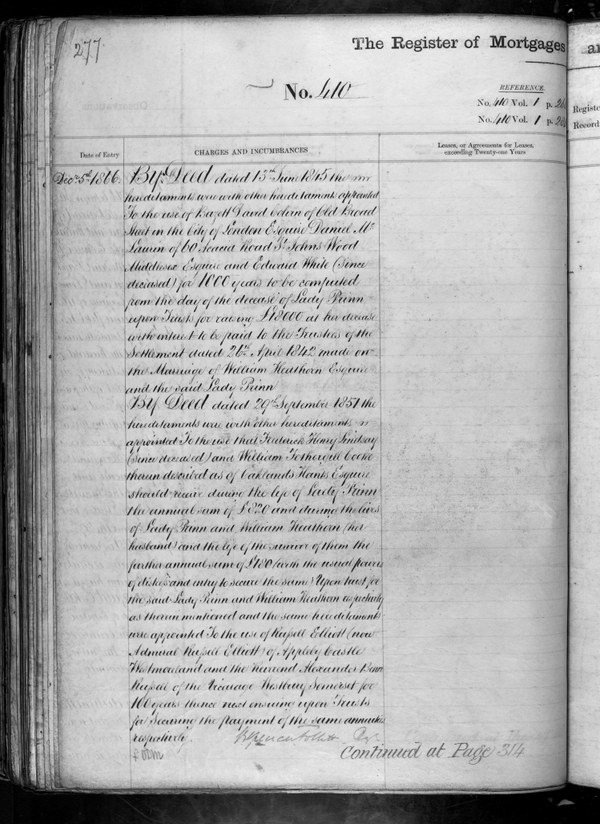 277
The Register of Mortgages
an
No. 410
REFERENCE.
No. 410 Vol. 1 p.
No. 410 Vol. 1 p.
Registe
Record
Date of Entry
CHARGES AND INCUMBRANCES
Leases, or Agreements for Leases,
exceeding Twenty-one Years
Decr 5th 1866.
By Deed dated 13th June 1845 the
hereditaments were with other hereditaments appointed
To the use of David Colvin of Old Broad
Street in the City of London Esquire Daniel Mc
of 60 Acacia Road St Johns Wood
Middlesex Esquire and Edward White (since
deceased) for 1000 years to be computed
from the day of the decease of Lady Pirnn
upon Trusts for raising £18000 at her decease
with interest to be paid to the Trustees of the
Settlement dated 26th April 1842 made on
the Marriage of William Heathorn Esquire
and the said Lady Pirnn
By Deed dated 29th September 1851 the
hereditaments were with other hereditaments
appointed To the use that Frederick Henry Lindsay
(since deceased) and William Fothergill Cooke
therein described as of Oaklands Hants Esquire
should receive during the life of Lady Pirnn
the annual sum of £320 and during the lives
of Lady Pirnn and William Heathorn (her
husband) and the life of the survivor of them the
further annual sum of £180 (with the usual powers
of distress and entry to secure the same) Upon trust for
the said Lady Pirnn and William Heathorn respectively
as therein mentioned and the same hereditaments
were appointed To the use of Russell Elliott (now
Admiral Russell Elliott) of Appleby Castle
Westmoreland and the Reverend Alexander
Russell of the Vicarage Westbury Somerset for
100 years thence next ensuing upon Trusts
for securing the payment of the same annuities
respectively.
Continued at Page 314